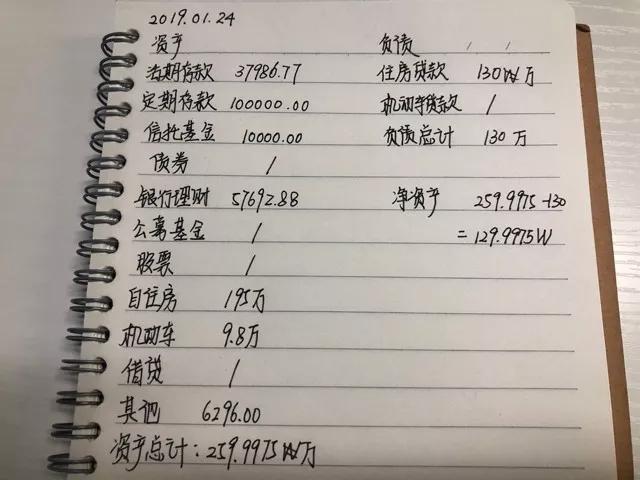 2019.01.24
资产 负债 / /
活期存款 37986.77 住房贷款 130W万
定期存款 100000.00 机动车贷款 /
信托基金 10000.00 负债总计 130万
债券 /
银行理财 57692.88 净资产 259.9975-130
公募基金 / =129.9975W
股票 /
自住房 195万
机动车 9.8万
借贷 /
其他 6296.00
资产总计:259.9975W万